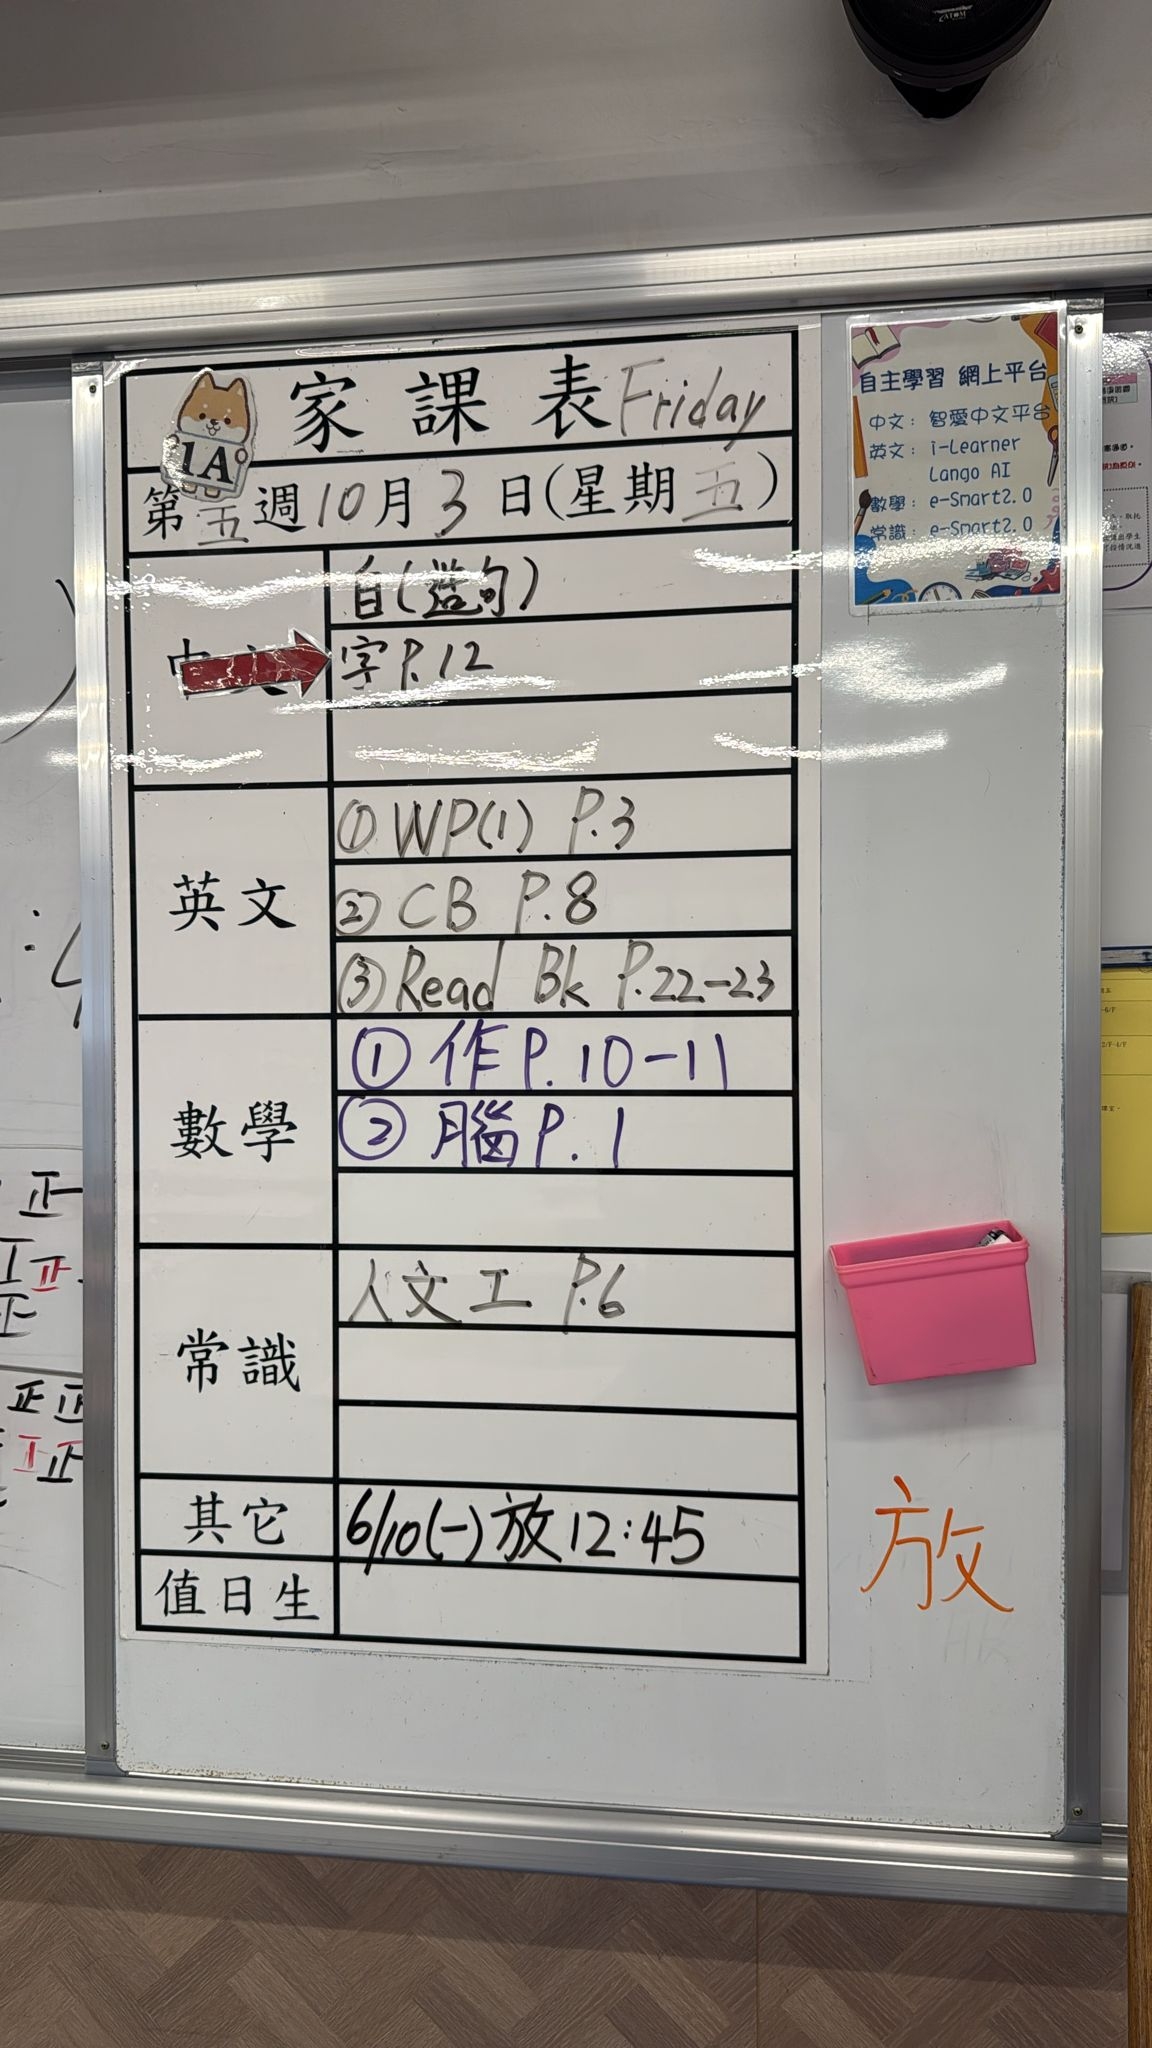 ATOM
家課表 Friday
1A
第五週10月3日(星期五)
中文
自(造句)
字P.12
英文
① WP(1) P.3
② CB P.8
③ Read Bk P.22-23
數學
① 作P.10-11
② 腦P.1
常識
人文工 P.6
其它
6/10(一)放12:45
值日生
自主學習 網上平台
中文: 智愛中文平台
英文: i-Learner
Lango AI
數學: e-Smart2.0
常識: e-Smart2.0
放
正
正
正
正正
正正